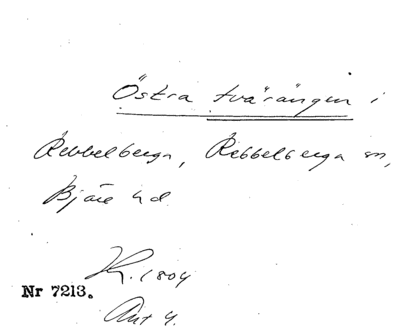 Östra tvärängen i
Rebbelberga, Rebbelberga sn,
Bjäre hd.
K. 1804
Nr 7213.
Akt 4.